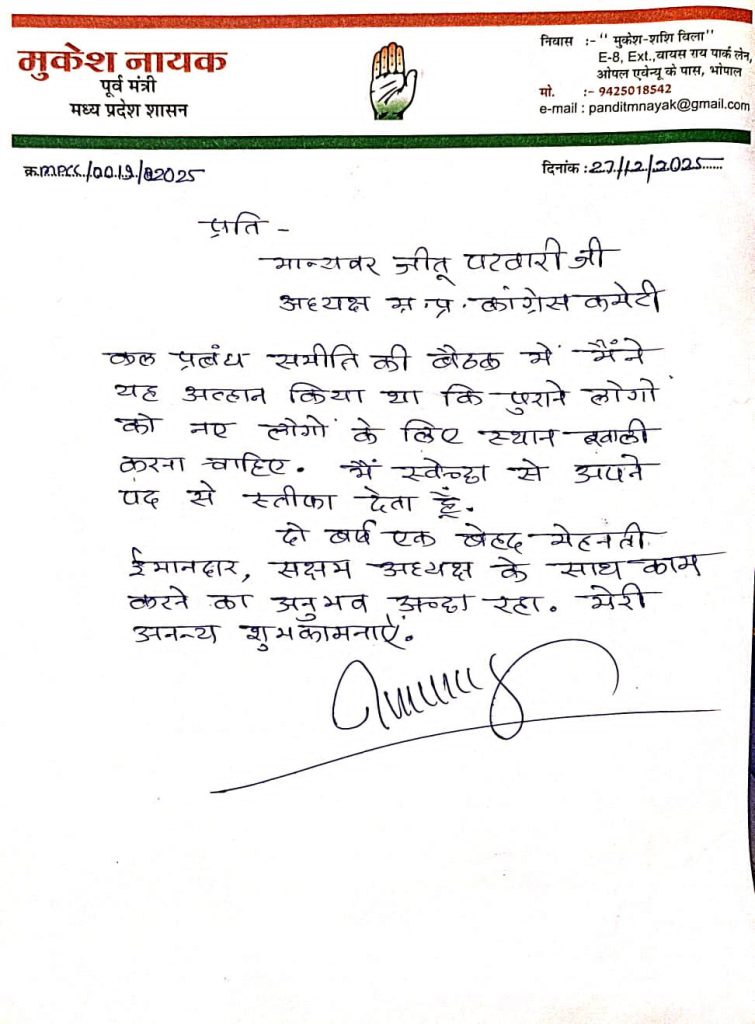 मुकेश नायक
पूर्व मंत्री
मध्य प्रदेश शासन
निवास :- " मुकेश-शशि विला"
E-8, Ext.,वायस राय पार्क लेन,
ओपल एवेन्यू के पास, भोपाल
मो. :- 9425018542
e-mail : panditmnayak@gmail.com
क्र.M.P.C.C./00.19./2025
दिनांक :27/12/2025
प्रति -
मान्यवर जीतू पटवारी जी
अध्यक्ष म.प्र. कांग्रेस कमेटी
कल प्रबंध समीति की बैठक में मैंने
यह अव्हान किया था कि पुराने लोगों
को नए लोगों के लिए स्थान खाली
करना चाहिए. मैं स्वेच्छा से अपने
पद से स्तीफा देता हूँ.
दो वर्ष एक बेहद मेहनती
ईमानदार, सक्षम अध्यक्ष के साथ काम
करने का अनुभव अच्छा रहा. मेरी
अनन्य शुभकामनाऐं.